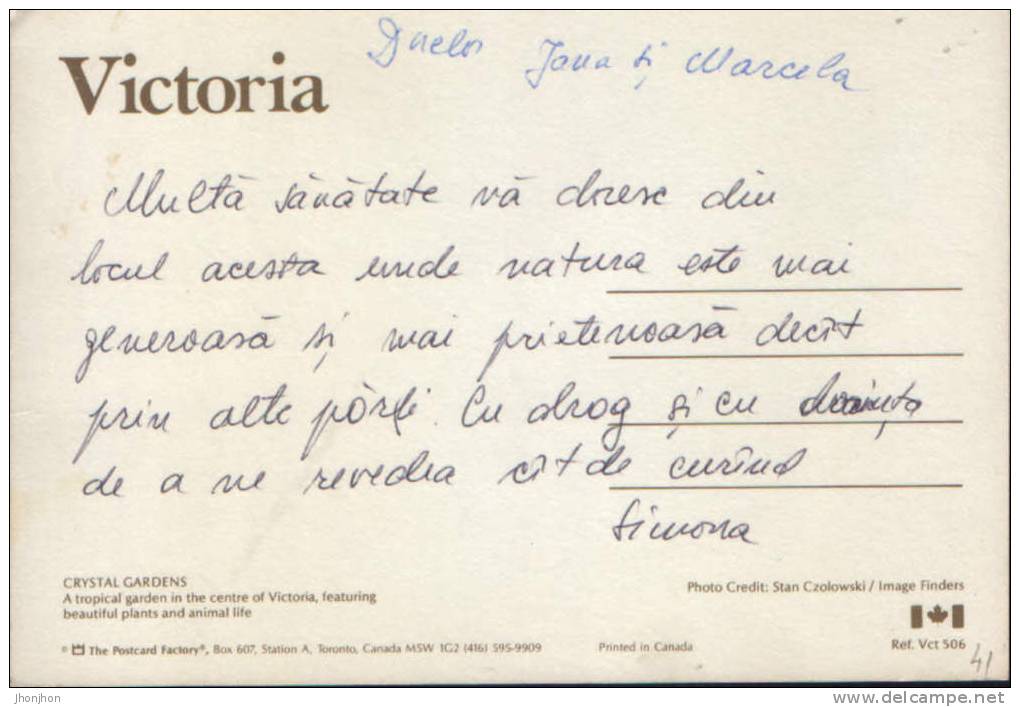 Victoria
Duelor Jana și Marcela
Multă sănătate vă doresc din
locul acesta unde natura este mai
generoasă și mai prietenoasă decît
prin alte părți. Cu drog și cu dorința
de a ne revedea cît de curînd
Simona
CRYSTAL GARDENS
A tropical garden in the centre of Victoria, featuring
beautiful plants and animal life
Photo Credit: Stan Czolowski / Image Finders
© The Postcard Factory®, Box 607, Station A, Toronto, Canada M5W 1G2 (416) 595-9909
Printed in Canada
Ref. Vct 506
41
jhonjhon
www.delcampe.net